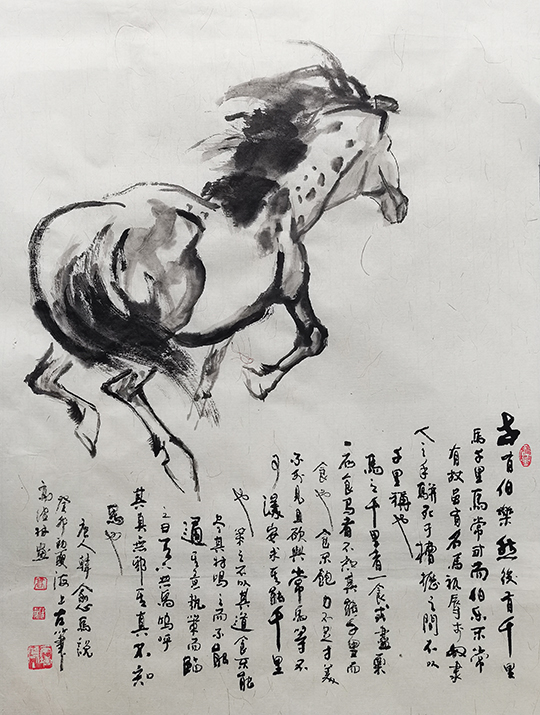 古有伯樂然後有千里
馬千里馬常有而伯樂不常
有故虽有名馬祇辱于奴隶
人之手駢死于槽櫪之間不以
千里稱也
馬之千里者一食或盡粟
一石食馬者不知其能千里而
食也食不飽力不足才美
不外見且欲與常馬等不
可得安求其能千里
也策之不以其道食不能
尽其材鳴之而不能
通其意執策而臨
之曰天下無馬嗚呼
其真無邪其真不知
馬也
唐人韓愈馬説
癸卯初夏海上古筆